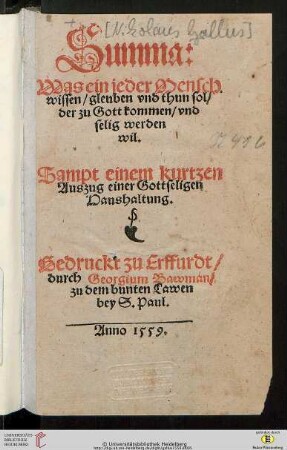 [Nikolaus Gallus]
Summa:
Was ein jeder Mensch
wissen/ gleuben vnd thun sol/
der zu Gott kommen/ vnd
selig werden
wil.
Sampt einem kurtzen
Auszug einer Gottseligen
Haushaltung.
Gedruckt zu Erffurdt/
durch Georgium Bawman/
zu dem bunten Lawen
bey S. Paul.
Anno 1559.
UNIVERSITÄTS-
BIBLIOTHEK
HEIDELBERG
© Universitätsbibliothek Heidelberg